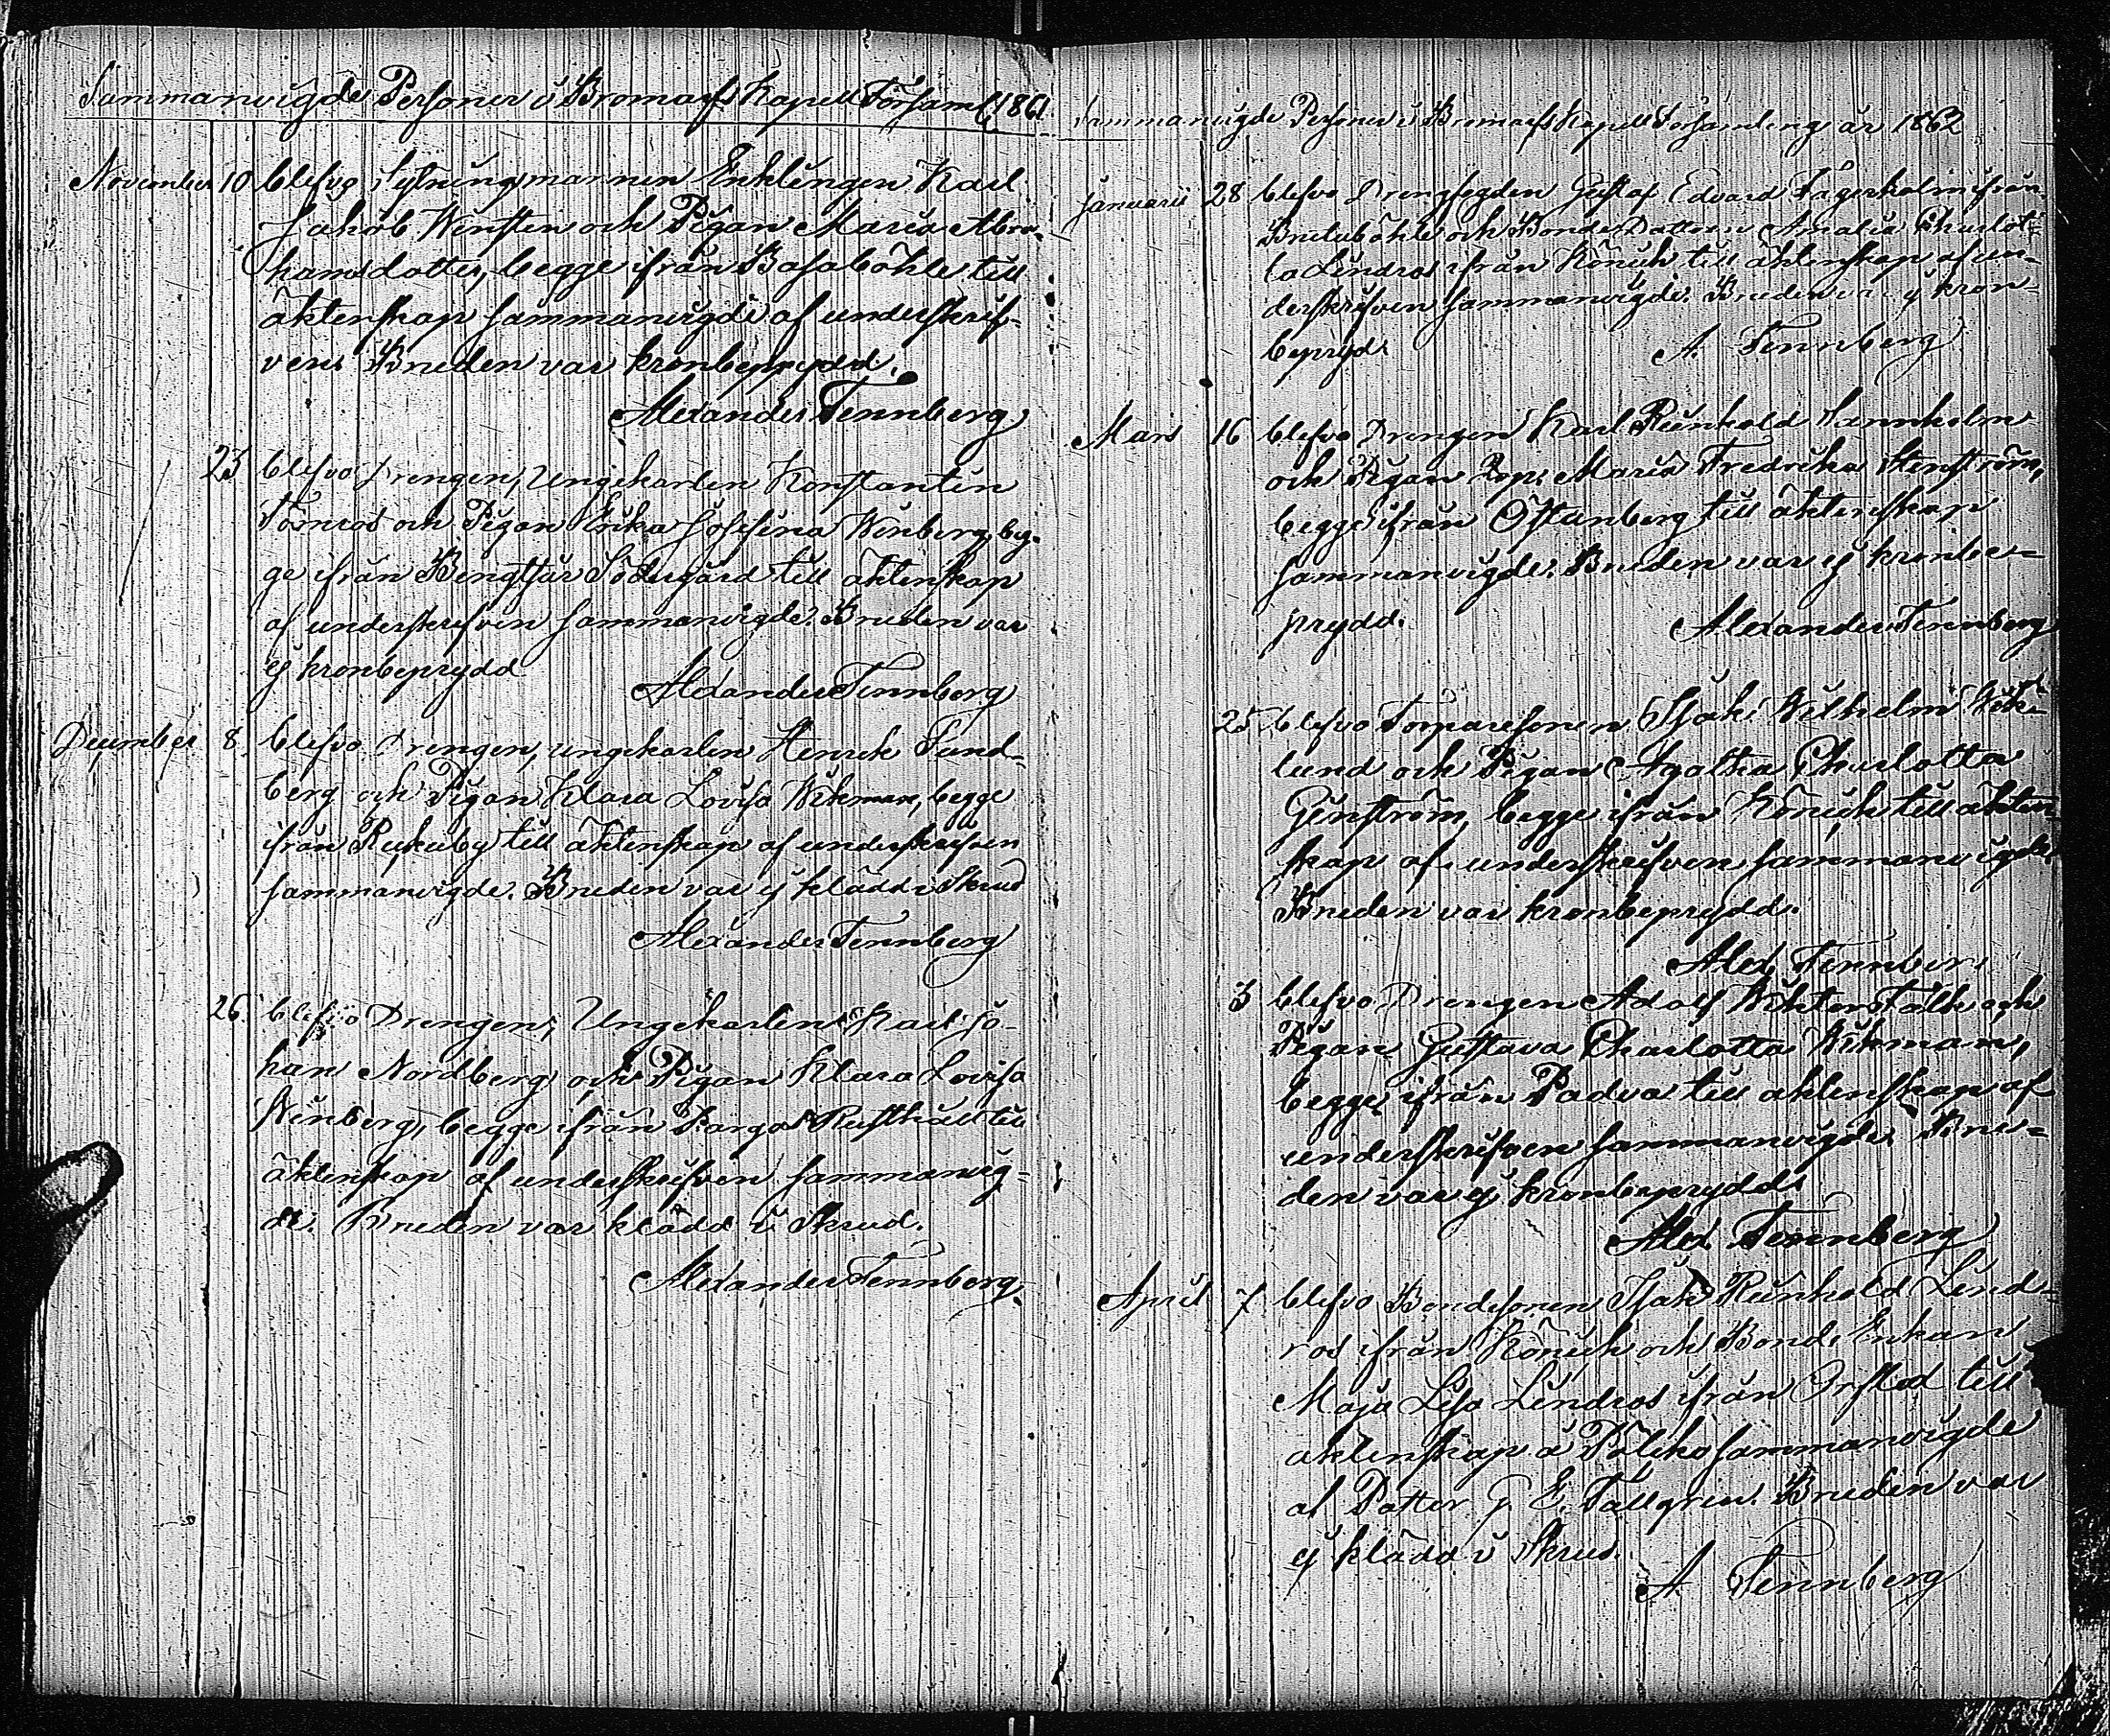 Sammanvigde Personer i Bromarfs Kapell Församl. 1861.
November 10 blefvo Sytningsmannen Enklingen Karl
Jakob Wensten och Pigan Maria Abra-
hamsdotter, begge ifrån Basaböhle till
äktenskap sammanvigde af underskrif-
ven. Bruden var kronbeprydd.
Alexander Tennberg
23 blefvo Drengen, Ungekarlen Konstantin
Törnros och Pigan Erika Josefina Winberg, beg-
ge ifrån Bengttjär Södergård till äktenskap
af underskrifven sammanvigde. Bruden var
ej kronbeprydd
Alexander Tennberg
December 8. blefvo Drengen, ungekarlen Henrik Sund-
berg och Pigan Klara Lovisa Wikman, begge
ifrån till äktenskap af underskrifven
sammanvigde. Bruden var ej klädd i Skrud
Alexander Tennberg
26. blefvo Drengen, Ungekarlen Karl Jo-
han Nordberg och Pigan Klara Lovisa
Winberg, begge ifrån Rusthåll till
äktenskap af underskrifven sammanvig-
de. Bruden var klädd i Skrud.
Alexander Tennberg.
Sammanvigde Personer i Bromarfs Kapell Församling år 1862
Januarii 28 blefvo Drengfogden Gustaf Edvard Fagerholm ifrån
och Bonde Dottren Amalia Charlot-
ta Lindros ifrån Könick till äktenskap af un-
derskrifven sammanvigde. Bruden var ej kron-
beprydd.
A. Tennberg
Mars 16 blefvo Drengen Karl Reinhold
och Pigan Maria Fredrika Stenström,
begge ifrån Östanberg till äktenskap
sammanvigde. Bruden var ej kronbe-
prydd.
Alexander Tennberg
25 blefvo Torparesonen Isak Wilhelm Wik-
lund och Pigan Agatha Charlotta
Genström, begge ifrån Könick till äkten-
skap af underskrifven sammanvigde.
Bruden var kronbeprydd.
Alex Tennberg
3 blefvo Drengen Adolf Wiktor Stålh och
Pigan Gustava Charlotta Wikman,
begge ifrån Padva till äktenskap af
underskrifven sammanvigde. Bru-
den var ej kronbeprydd.
Alex Tennberg
April 7 blefvo Bondesonen Isak Reinhold Lind-
ros ifrån Könick och Bonde Enkan
Maja Lisa Lindros ifrån Orsled till
äktenskap å sammanvigde
af E. Tallgren. Bruden var
ej klädd i Skrud.
A Tennberg